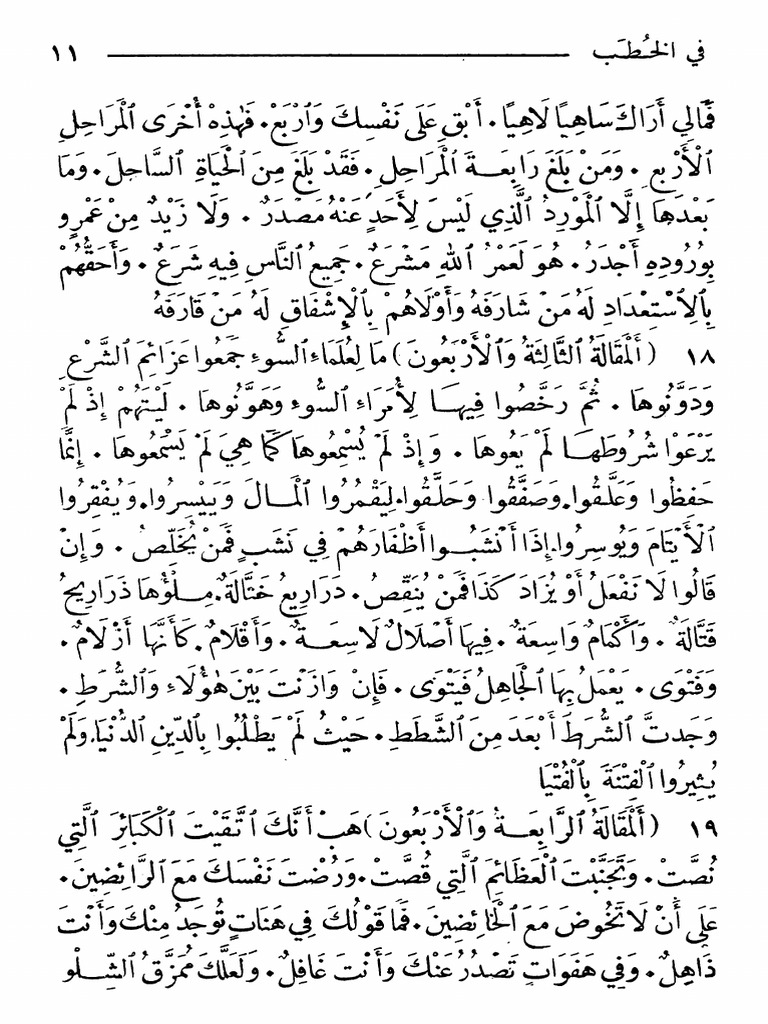 في الخُطَب ١١
فَمَالِي أَرَاكَ سَاهِيًا لَاهِيًا . أَبْقِ عَلَى نَفْسِكَ وَٱرْبَعْ . فَهٰذِهْ أُخْرَى ٱلْمَرَاحِلِ
ٱلْأَرْبَعِ . وَمَنْ بَلَغَ رَابِعَةَ ٱلْمَرَاحِلِ . فَقَدْ بَلَغَ مِنَ ٱلْحَيَاةِ ٱلسَّاحِلَ . وَمَا
بَعْدَهَا إِلَّا ٱلْمَوْرِدُ ٱلَّذِي لَيْسَ لِأَحَدٍ عَنْهُ مَصْدَرٌ . وَلَا زَيْدٌ مِنْ عَمْرٍو
بِوُرُودِهِ أَجْدَرُ . هُوَ لَعَمْرُ ٱللهِ مَشْرَعٌ . جَمِيعُ ٱلنَّاسِ فِيهِ شَرَعٌ . وَأَحَقُّهُمْ
بِٱلِٱسْتِعْدَادِ لَهُ مَنْ شَارَفَهُ وَأَوْلَاهُمْ بِٱلْإِشْفَاقِ لَهُ مَنْ قَارَفَهُ
١٨ (أَلْمَقَالَةُ ٱلثَّالِثَةُ وَٱلْأَرْبَعُونَ) مَا لِعُلَمَاءِ ٱلسُّوءِ جَمَعُوا عَزَائِمَ ٱلشَّرْعِ
وَدَوَّنُوهَا . ثُمَّ رَخَّصُوا فِيهَا لِأُمَرَاءِ ٱلسُّوءِ وَهَوَّنُوهَا . لَيْتَهُمْ إِذْ لَمْ
يَرْعَوْا شُرُوطَهَا لَمْ يَعُوهَا . وَإِذْ لَمْ يُسْمِعُوهَا كَمَا هِيَ لَمْ يَسْمَعُوهَا . إِنَّمَا
حَفِظُوا وَعَلَّقُوا . وَصَفَّقُوا وَحَلَّقُوا . لِيَقْمُرُوا ٱلْمَالَ وَيَيْسِرُوا . وَيُفْقِرُوا
ٱلْأَيْتَامَ وَيُوسِرُوا . إِذَا أَنْشَبُوا أَظْفَارَهُمْ فِي نَشَبٍ فَمَنْ يُخَلِّصُ . وَإِنْ
قَالُوا لَا نَفْعَلُ أَوْ يُزَادَ كَذَا فَمَنْ يُنَقِّصُ . دَرَارِيعُ خَتَّالَةٌ . مِلْؤُهَا ذَرَارِيحُ
قَتَّالَةٌ . وَأَكْمَامٌ وَاسِعَةٌ . فِيهَا أَصْلَالٌ لَاسِعَةٌ . وَأَقْلَامٌ . كَأَنَّهَا أَزْلَامٌ .
وَفَتْوَى . يَعْمَلُ بِهَا ٱلْجَاهِلُ فَيَتْوَى . فَإِنْ وَازَنْتَ بَيْنَ هٰؤُلَاءِ وَٱلشُّرَطِ .
وَجَدتَّ ٱلشُّرَطَ أَبْعَدَ مِنَ ٱلشَّطَطِ . حَيْثُ لَمْ يَطْلُبُوا بِٱلدِّينِ ٱلدُّنْيَا . وَلَمْ
يُثِيرُوا ٱلْفِتْنَةَ بِٱلْفُتْيَا
١٩ (أَلْمَقَالَةُ ٱلرَّابِعَةُ وَٱلْأَرْبَعُونَ) هَبْ أَنَّكَ ٱتَّقَيْتَ ٱلْكَبَائِرَ ٱلَّتِي
نُصَّتْ . وَتَجَنَّبْتَ ٱلْعَظَائِمَ ٱلَّتِي قُصَّتْ . وَرُضْتَ نَفْسَكَ مَعَ ٱلرَّائِضِينَ .
عَلَى أَنْ لَا تَخُوضَ مَعَ ٱلْخَائِضِينَ . فَمَا قَوْلُكَ فِي هَنَاتٍ تُوجَدُ مِنْكَ وَأَنْتَ
ذَاهِلٌ . وَفِي هَفَوَاتٍ تَصْدُرُ عَنْكَ وَأَنْتَ غَافِلٌ . وَلَعَلَّكَ مُمَزَّقُ ٱلشِّلْوِ